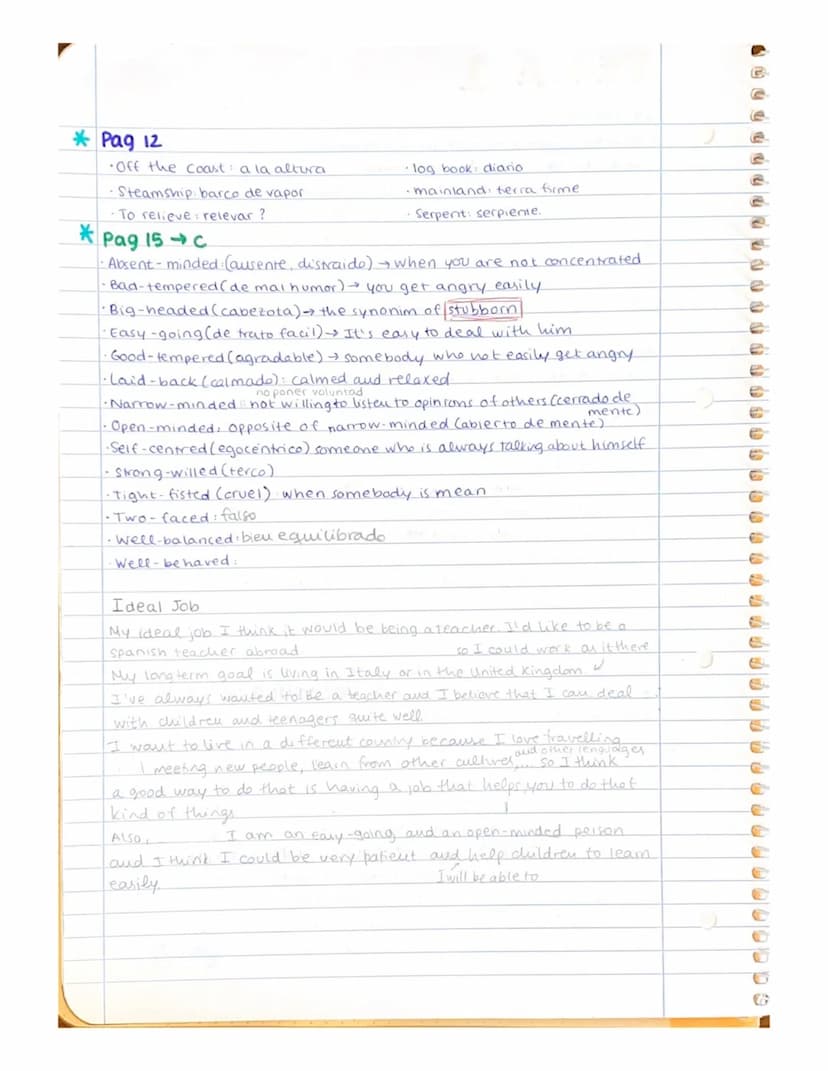 * Pag 12
· Off the coast: a la altura
· log book: diario
· Steamship: barco de vapor
· mainland: terra firme
· To relieve: relevar ?
· Serpent: serpiente.
* Pag 15 → C
· Absent-minded: (ausente, distraido) → when you are not concentrated
· Bad-tempered (de mal humor) → you get angry easily
· Big-headed (cabezota) → the synonim of stubborn
· Easy-going (de trato facil) → It's easy to deal with him
· Good-tempered (agradable) → somebody who not easily get angry
· Laid-back (calmado): calmed and relaxed
no poner voluntad
· Narrow-minded: not willing to listen to opinions of others (cerrado de
mente)
· Open-minded: opposite of narrow-minded (abierto de mente)
· Self-centred (egocéntrico) someone who is always talking about himself
· Strong-willed (terco)
· Tight-fisted (cruel) when somebody is mean
· Two-faced: falso
· Well-balanced: bien equilibrado
· Well-behaved:
Ideal Job
My ideal job I think it would be being a teacher. I'd like to be a
spanish teacher abroad so I could work as it there
My long term goal is living in Italy or in the United Kingdom
I've always wanted to be a teacher and I believe that I can deal
with children and teenagers quite well.
I want to live in a different country because I love travelling
and other lenguages
, meeting new people, learn from other cultures,... so I think
a good way to do that is having a job that helps you to do that
kind of things
Also, I am an easy-going and an open-minded person
and I think I could be very patient and help children to learn
I will be able to
easily.